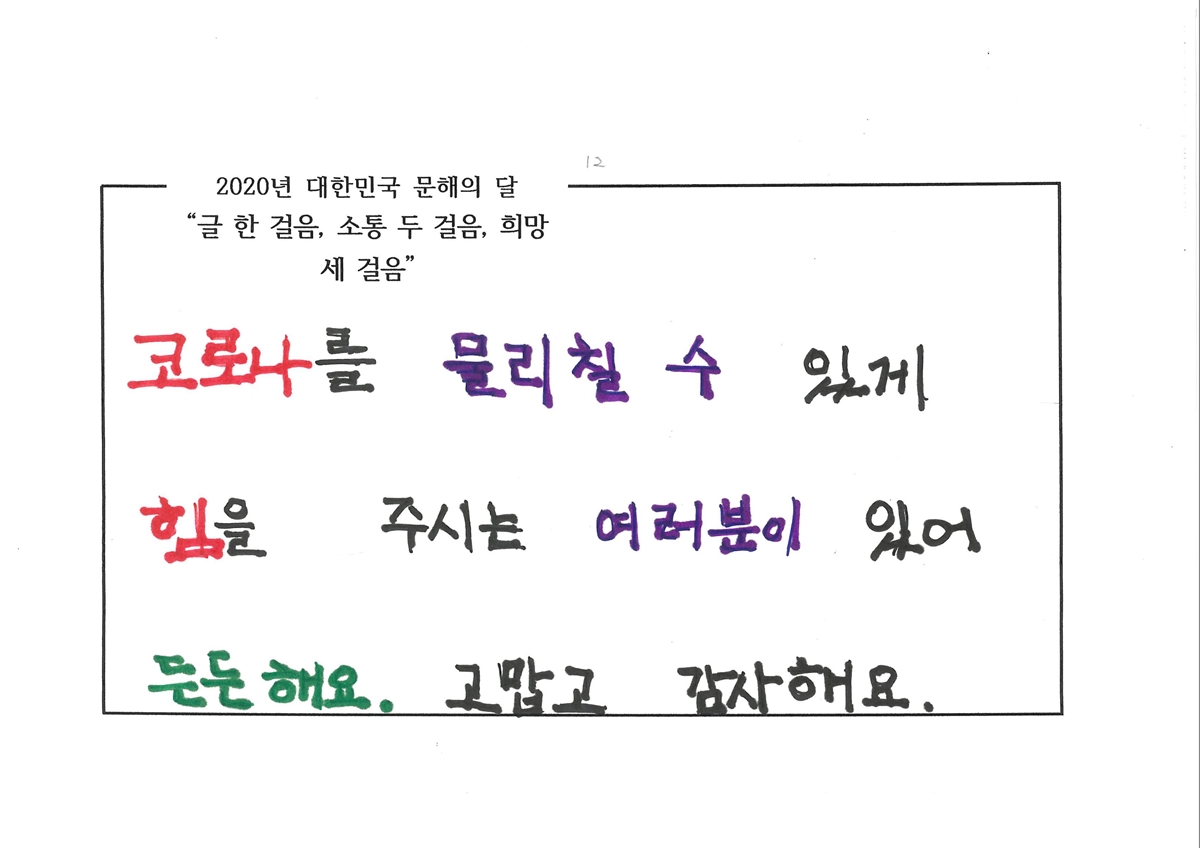 12
2020년 대한민국 문해의 달
“글 한 걸음, 소통 두 걸음, 희망
세 걸음”
코로나를 물리칠 수 있게
힘을 주시는 여러분이 있어
든든해요. 고맙고 감사해요.